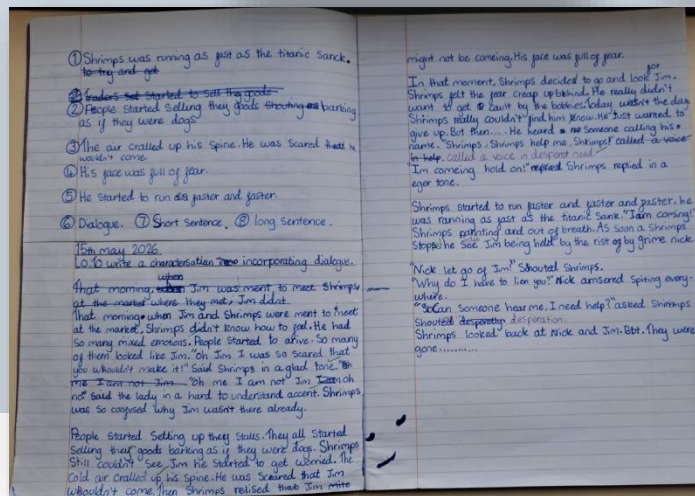 ① Shrimps was running as fast as the titanic sanck.
to try and get
② Traders set started to sell they goods
② People started selling they goods shouting as barking
as if they were dogs
③ The air cralled up his spine. He was scared that he
wouldn't come.
④ His face was full of fear.
⑤ He started to run as faster and faster.
⑥ Dialogue. ⑦ Short Sentence. ⑧ long sentence.
15th may 2026
L.O: To write a charactersation incorporating dialogue.
when
That morning, Jim was ment to meet Shrimps
at the market where they met, Jim didnt.
That morning when Jim and Shrimps were ment to meet
at the market, Shrimps didn't know how to feel. He had
so many mixed emotions. People started to arive. So many
of them looked like Jim. "oh Jim. I was so scared that
you whouldn't make it!" Said Shrimps in a glad tone. "Oh
me I am not Jim "Oh me I am not" Jim I am oh
no" said the lady in a hard to understand accent. Shrimps
was so confused why Jim wasn't there already.
People started Setting up they stalls. They all started
selling they goods barking as if they were dogs. Shrimps
still couldn't see Jim he started to get worried. The
cold air cralled up his spine. He was Scared that Jim
whouldn't come. Then Shrimps relised that Jim mite
might not be comeing. His face was full of fear.
for
In that moment, Shrimps decided to go and look Jim.
Shrimps felt the fear creap up behind. He really didn't
want to get cault by the bobbies. Today wasn't the day
Shrimps really couldn't find him know. He just wanted to
give up. But then.... He heard someone calling his
name. "Shrimps, Shrimps help me. Shrimps! called a voice
in help. called a voice in desperst need.
"Im comeing hold on!" replied Shrimps replied in a
eger tone.
Shrimps started to run faster and faster and faster. he
was ranning as fast as the titanic sank. "I am coming!"
Shrimps pannting and out of breath. As soon a Shrimps
stops he see Jim being held by the rist of by grime nick.
"Nick let go of Jim!" Shouted Shrimps.
"Why do I have to lien you?" Nick amsered Spiting every-
where.
"Can someone hear me, I need help?" asked Shrimps
shouted desperatly desperation.
Shrimps looked back at Nick and Jim. Bbt. They were
gone..........